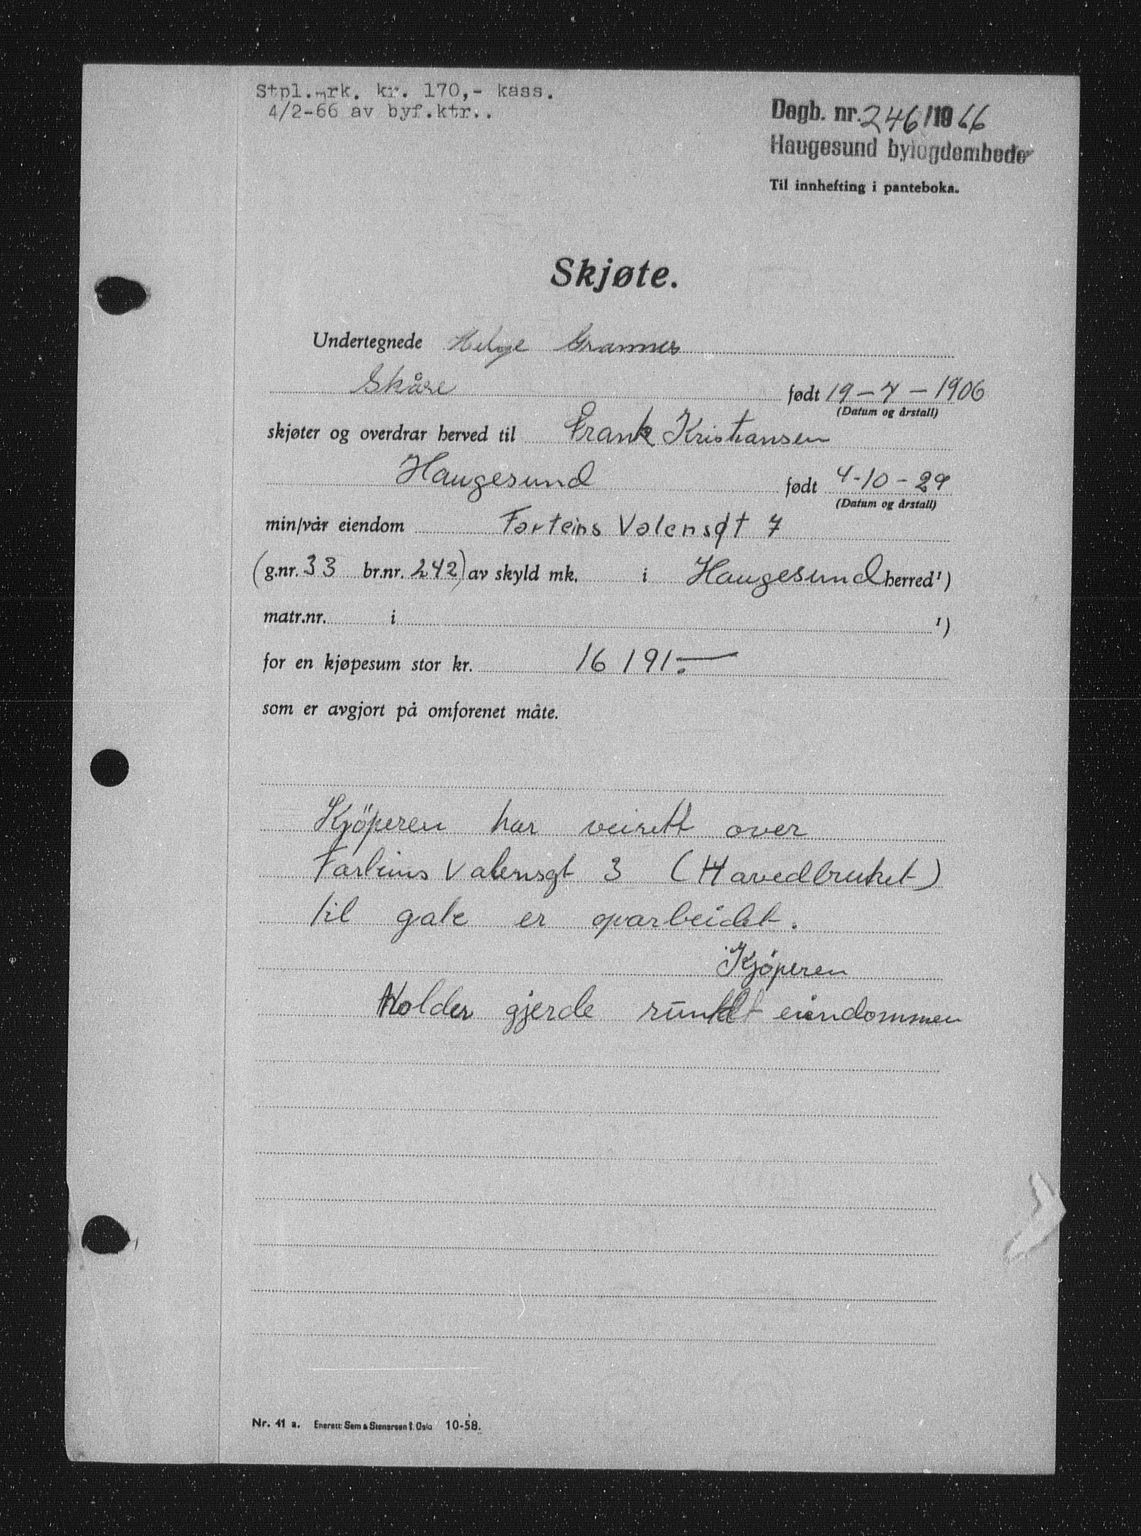 Stpl.mrk. kr. 170,- kass.
4/2-66 av byf.ktr..
Dagb. nr. 246/1966
Haugesund byfogdembede
Til innhefting i panteboka.
Skjøte.
Undertegnede Helge Grannes
Skåre født 19-7-1906
(Datum og årstall)
skjøter og overdrar herved til Frank Kristiansen
Haugesund født 4-10-29
(Datum og årstall)
min/vår eiendom Farteins Valensgt 7
(g.nr. 33 br.nr. 242) av skyld mk. i Haugesund herred¹)
matr.nr. i ¹)
for en kjøpesum stor kr. 16 191.—
som er avgjort på omforenet måte.
Kjöperen har veirett over
Farteins Valensgt 3 (Havedbruket)
til gate er oparbeidet.
Kjöperen
Holder gjerde rundt eiendommen
Nr. 41 a. Enerett: Sem & Stenersen A/S, Oslo 10-58.